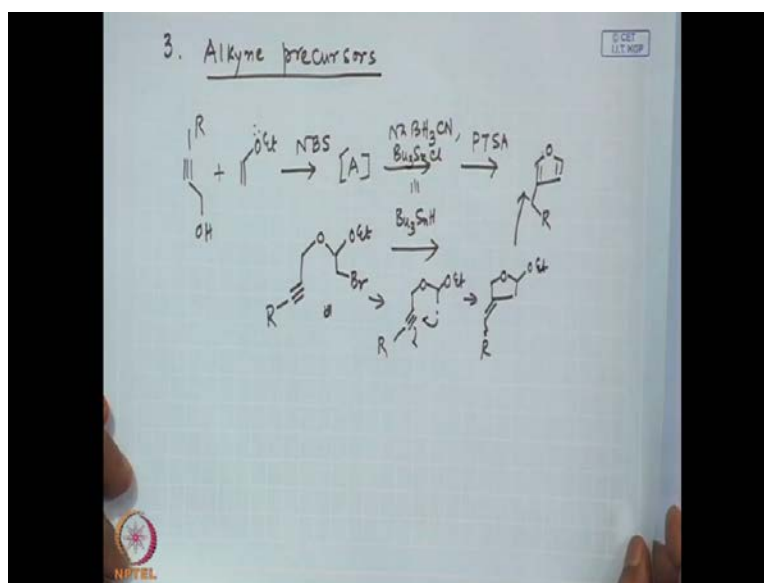 3. Alkyne precursors
© CET
I.I.T. KGP
R
OH
+
OEt
NBS
[A]
NaBH3CN,
Bu3SnCl
PTSA
O
R
Bu3SnH
O
OEt
Br
R
O
OEt
R
O
OEt
R
NPTEL